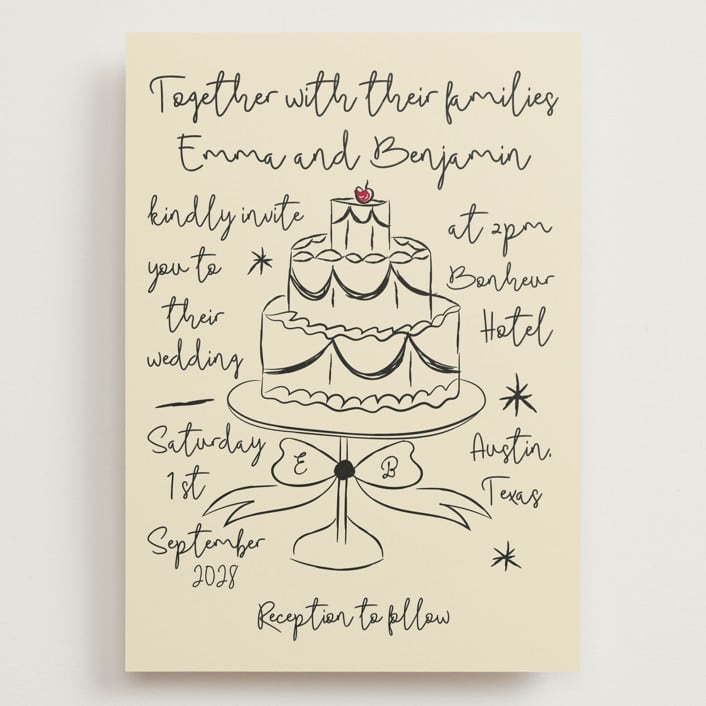 Together with their families
Emma and Benjamin
kindly invite
you to
their
wedding
Saturday
1st
September
2028
at 2pm
Bonheur
Hotel
Austin,
Texas
E B
Reception to follow